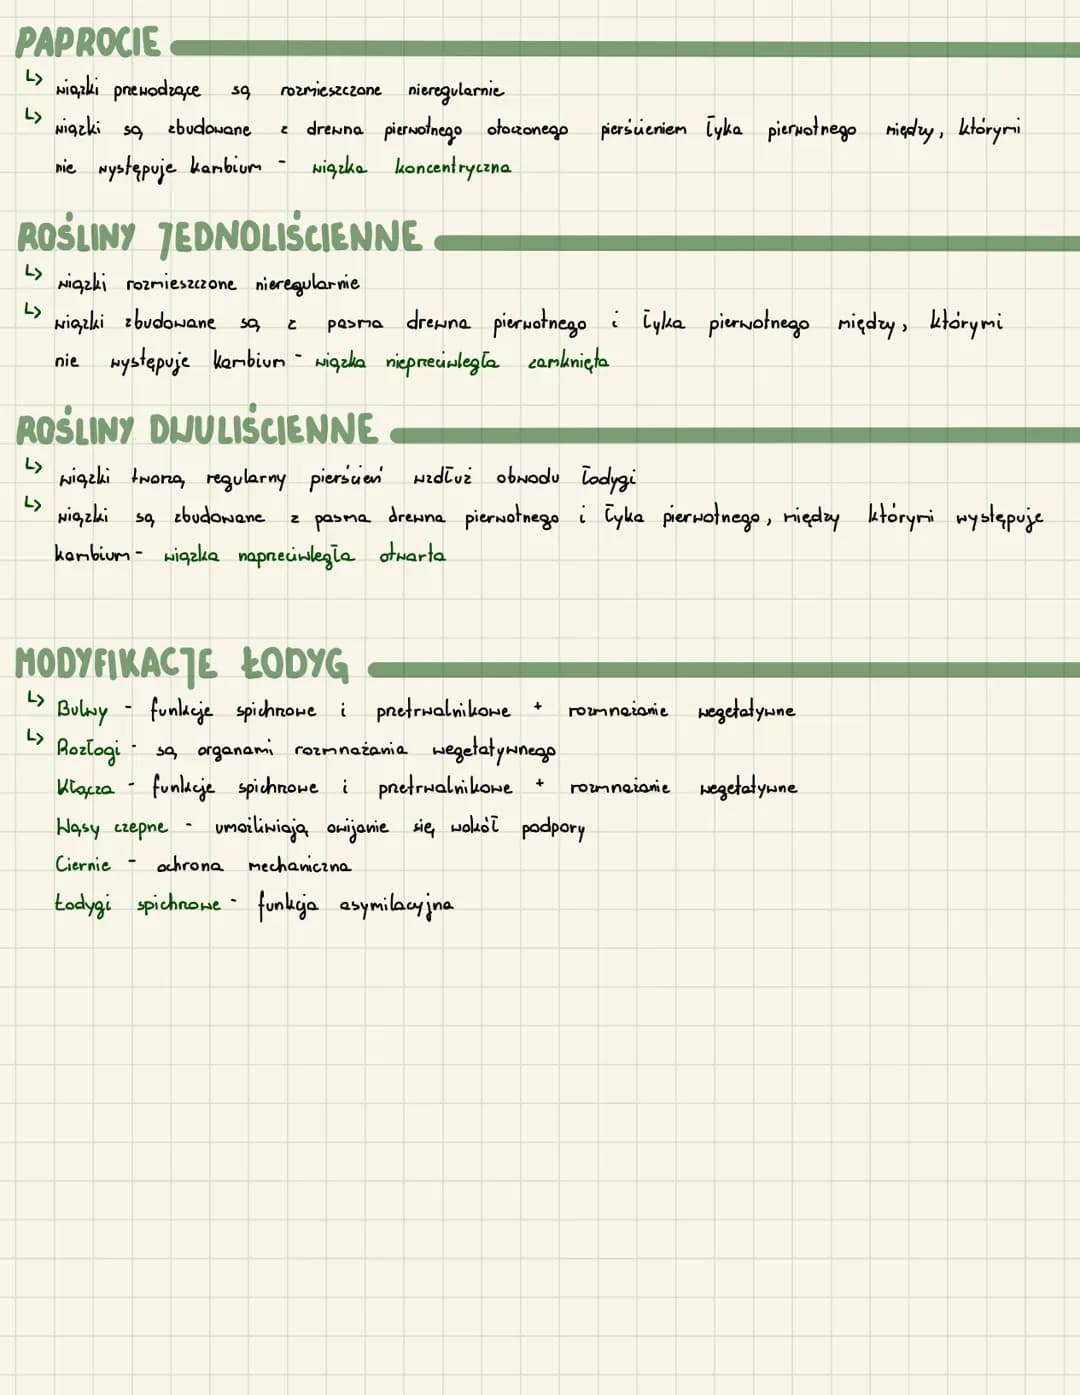 PAPROCIE
↳ wiązki przewodzące są rozmieszczone nieregularnie
↳ wiązki są zbudowane z drewna pierwotnego otoczonego pierścieniem łyka pierwotnego między, którymi
nie występuje kambium - wiązka koncentryczna
ROŚLINY JEDNOLIŚCIENNE
↳ wiązki rozmieszczone nieregularnie
↳ wiązki zbudowane są z pasma drewna pierwotnego i łyka pierwotnego między, którymi
nie występuje kambium - wiązka nieprzeciwległa zamknięta
ROŚLINY DWULIŚCIENNE
↳ wiązki tworzą regularny pierścień wzdłuż obwodu łodygi
↳ wiązki są zbudowane z pasma drewna pierwotnego i łyka pierwotnego, między którymi występuje
kambium - wiązka naprzeciwległa otwarta
MODYFIKACJE ŁODYG
↳ Bulwy - funkcje spichrzowe i przetrwalnikowe + rozmnażanie wegetatywne
↳ Rozłogi - są organami rozmnażania wegetatywnego
Kłącza - funkcje spichrzowe i przetrwalnikowe + rozmnażanie wegetatywne
Wąsy czepne - umożliwiają owijanie się wokół podpory
Ciernie - ochrona mechaniczna
Łodygi spichrzowe - funkcja asymilacyjna